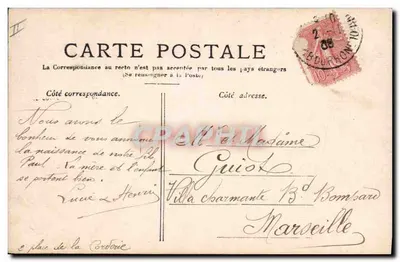 II
CARTE POSTALE
La Correspondance au recto n'est pas acceptée par tous les pays étrangers
(Se renseigner à la Poste)
Côté correspondance.
Côté adresse.
Nous avons le
bonheur de vous annoncer
la naissance de notre fils
Paul. La mère et l'enfant
se portent bien.
Luce & Henri
2 place de la Corderie
M. et Madame
Guiot
Villa charmante Bd Bompard
Marseille